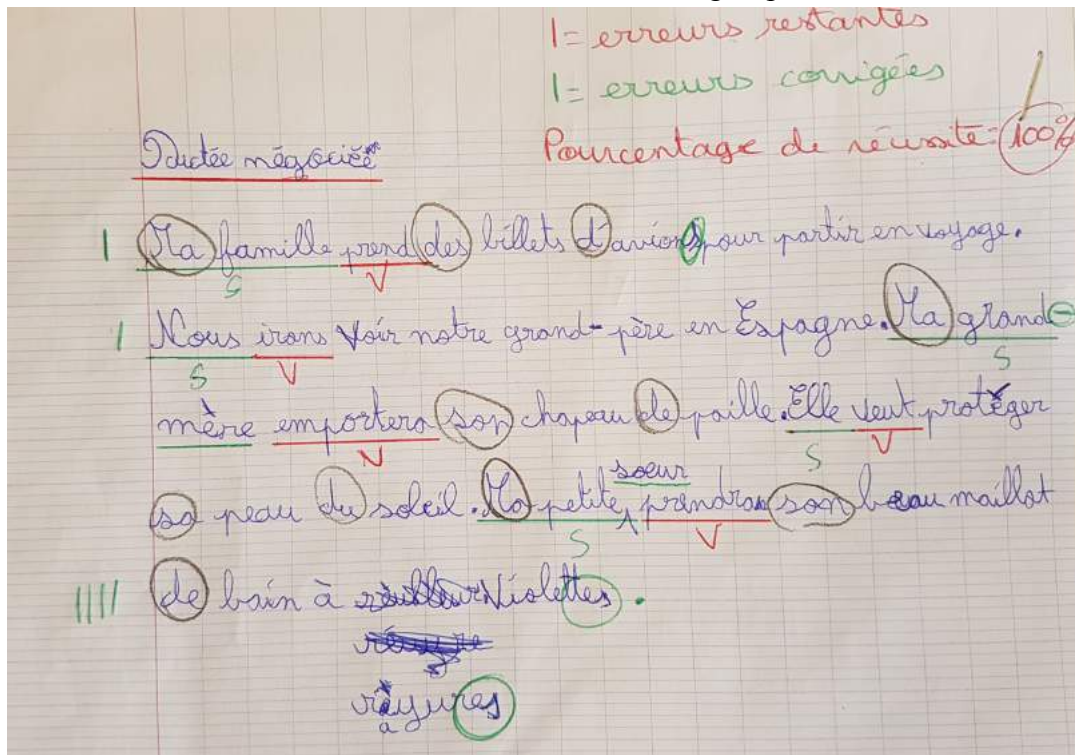 1 = erreurs restantes
1 = erreurs corrigées
Pourcentage de réussite = 100%
Dictée négociée
Ma famille prend des billets d'avions pour partir en voyage.
S V
Nous irons voir notre grand-père en Espagne. Ma grand-
S V S
mère emportera son chapeau de paille. Elle veut protéger
V S V
soeur
sa peau du soleil. Ma petite prendra son beau maillot
S V
de bain à violettes.
rayures